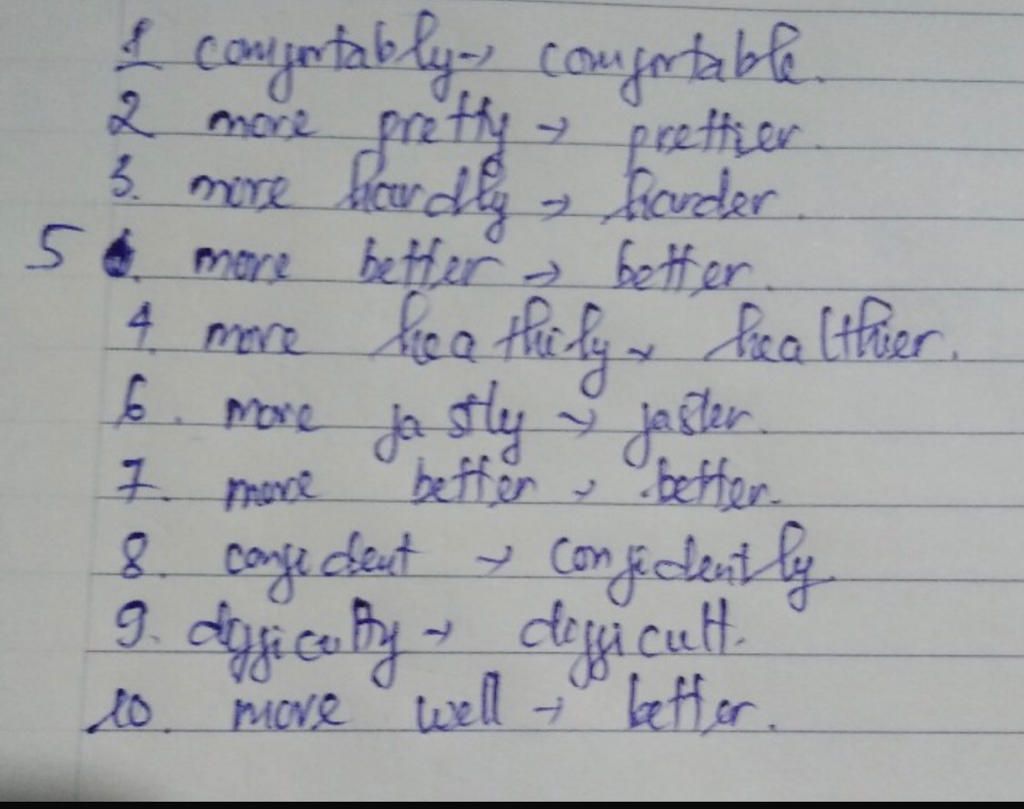 1 comfortably → comfortable.
2 more pretty → prettier.
3. more hardly → harder.
5 . more better → better.
4. more heathily → healthier.
6. more fastly → faster.
7. more better → better.
8. confident → confidently
9. difficulty → difficult.
10. more well → better.